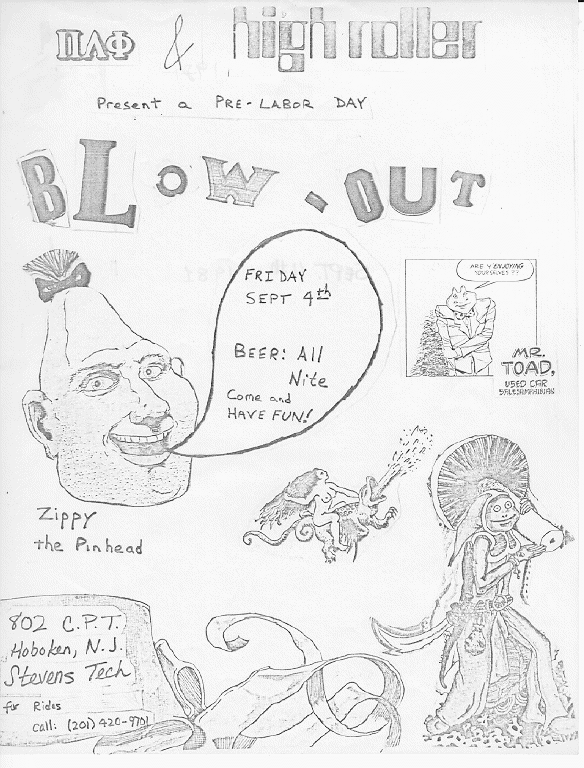 ΠΛΦ & high roller
Present a PRE-LABOR DAY
BLOW-OUT
FRIDAY
SEPT 4th
BEER: All
Nite
Come and
HAVE FUN!
ARE Y'ENJOYING
YOURSELVES??
MR.
TOAD,
USED CAR
SALESAMPHIBIAN
Zippy
the Pinhead
802 C.P.T.
Hoboken, N.J.
Stevens Tech
for Rides
call: (201) 420-9701